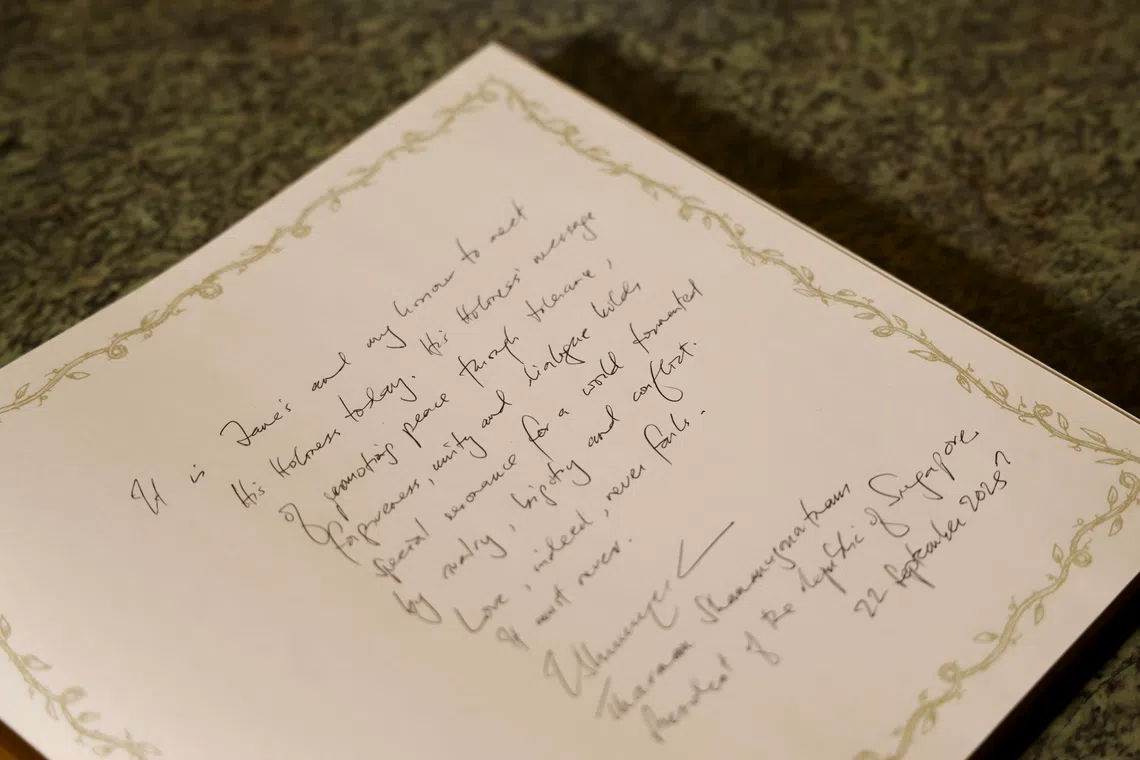 It is Jane's and my honour to meet
His Holiness today. His Holiness' message
of promoting peace through tolerance,
forgiveness, unity and dialogue holds
special resonance for a world tormented
by rivalry, bigotry and conflict.
Love, indeed, never fails.
It must never.
Tharman Shanmugaratnam
President of the Republic of Singapore
22 September 2025